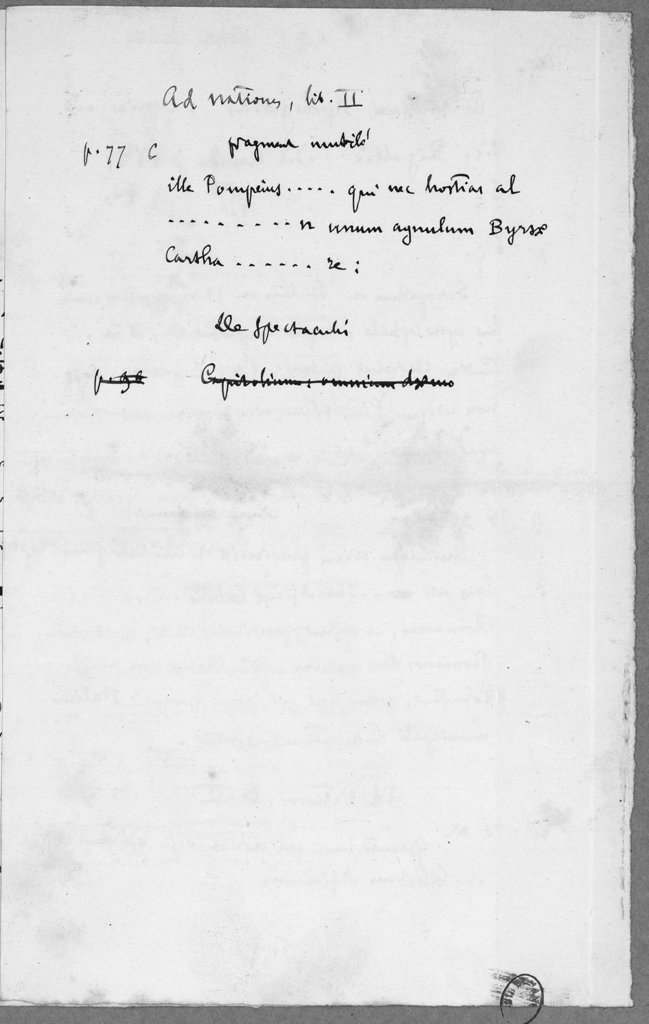 Ad nationes, lib. II
p. 77 C fragment mutilé
ille Pompeius ..... qui nec hostias al
......... n unum agnulum Byrsæ
Cartha ...... re :
De Spectaculis
p. 96 Capitolium : omnium dæmo